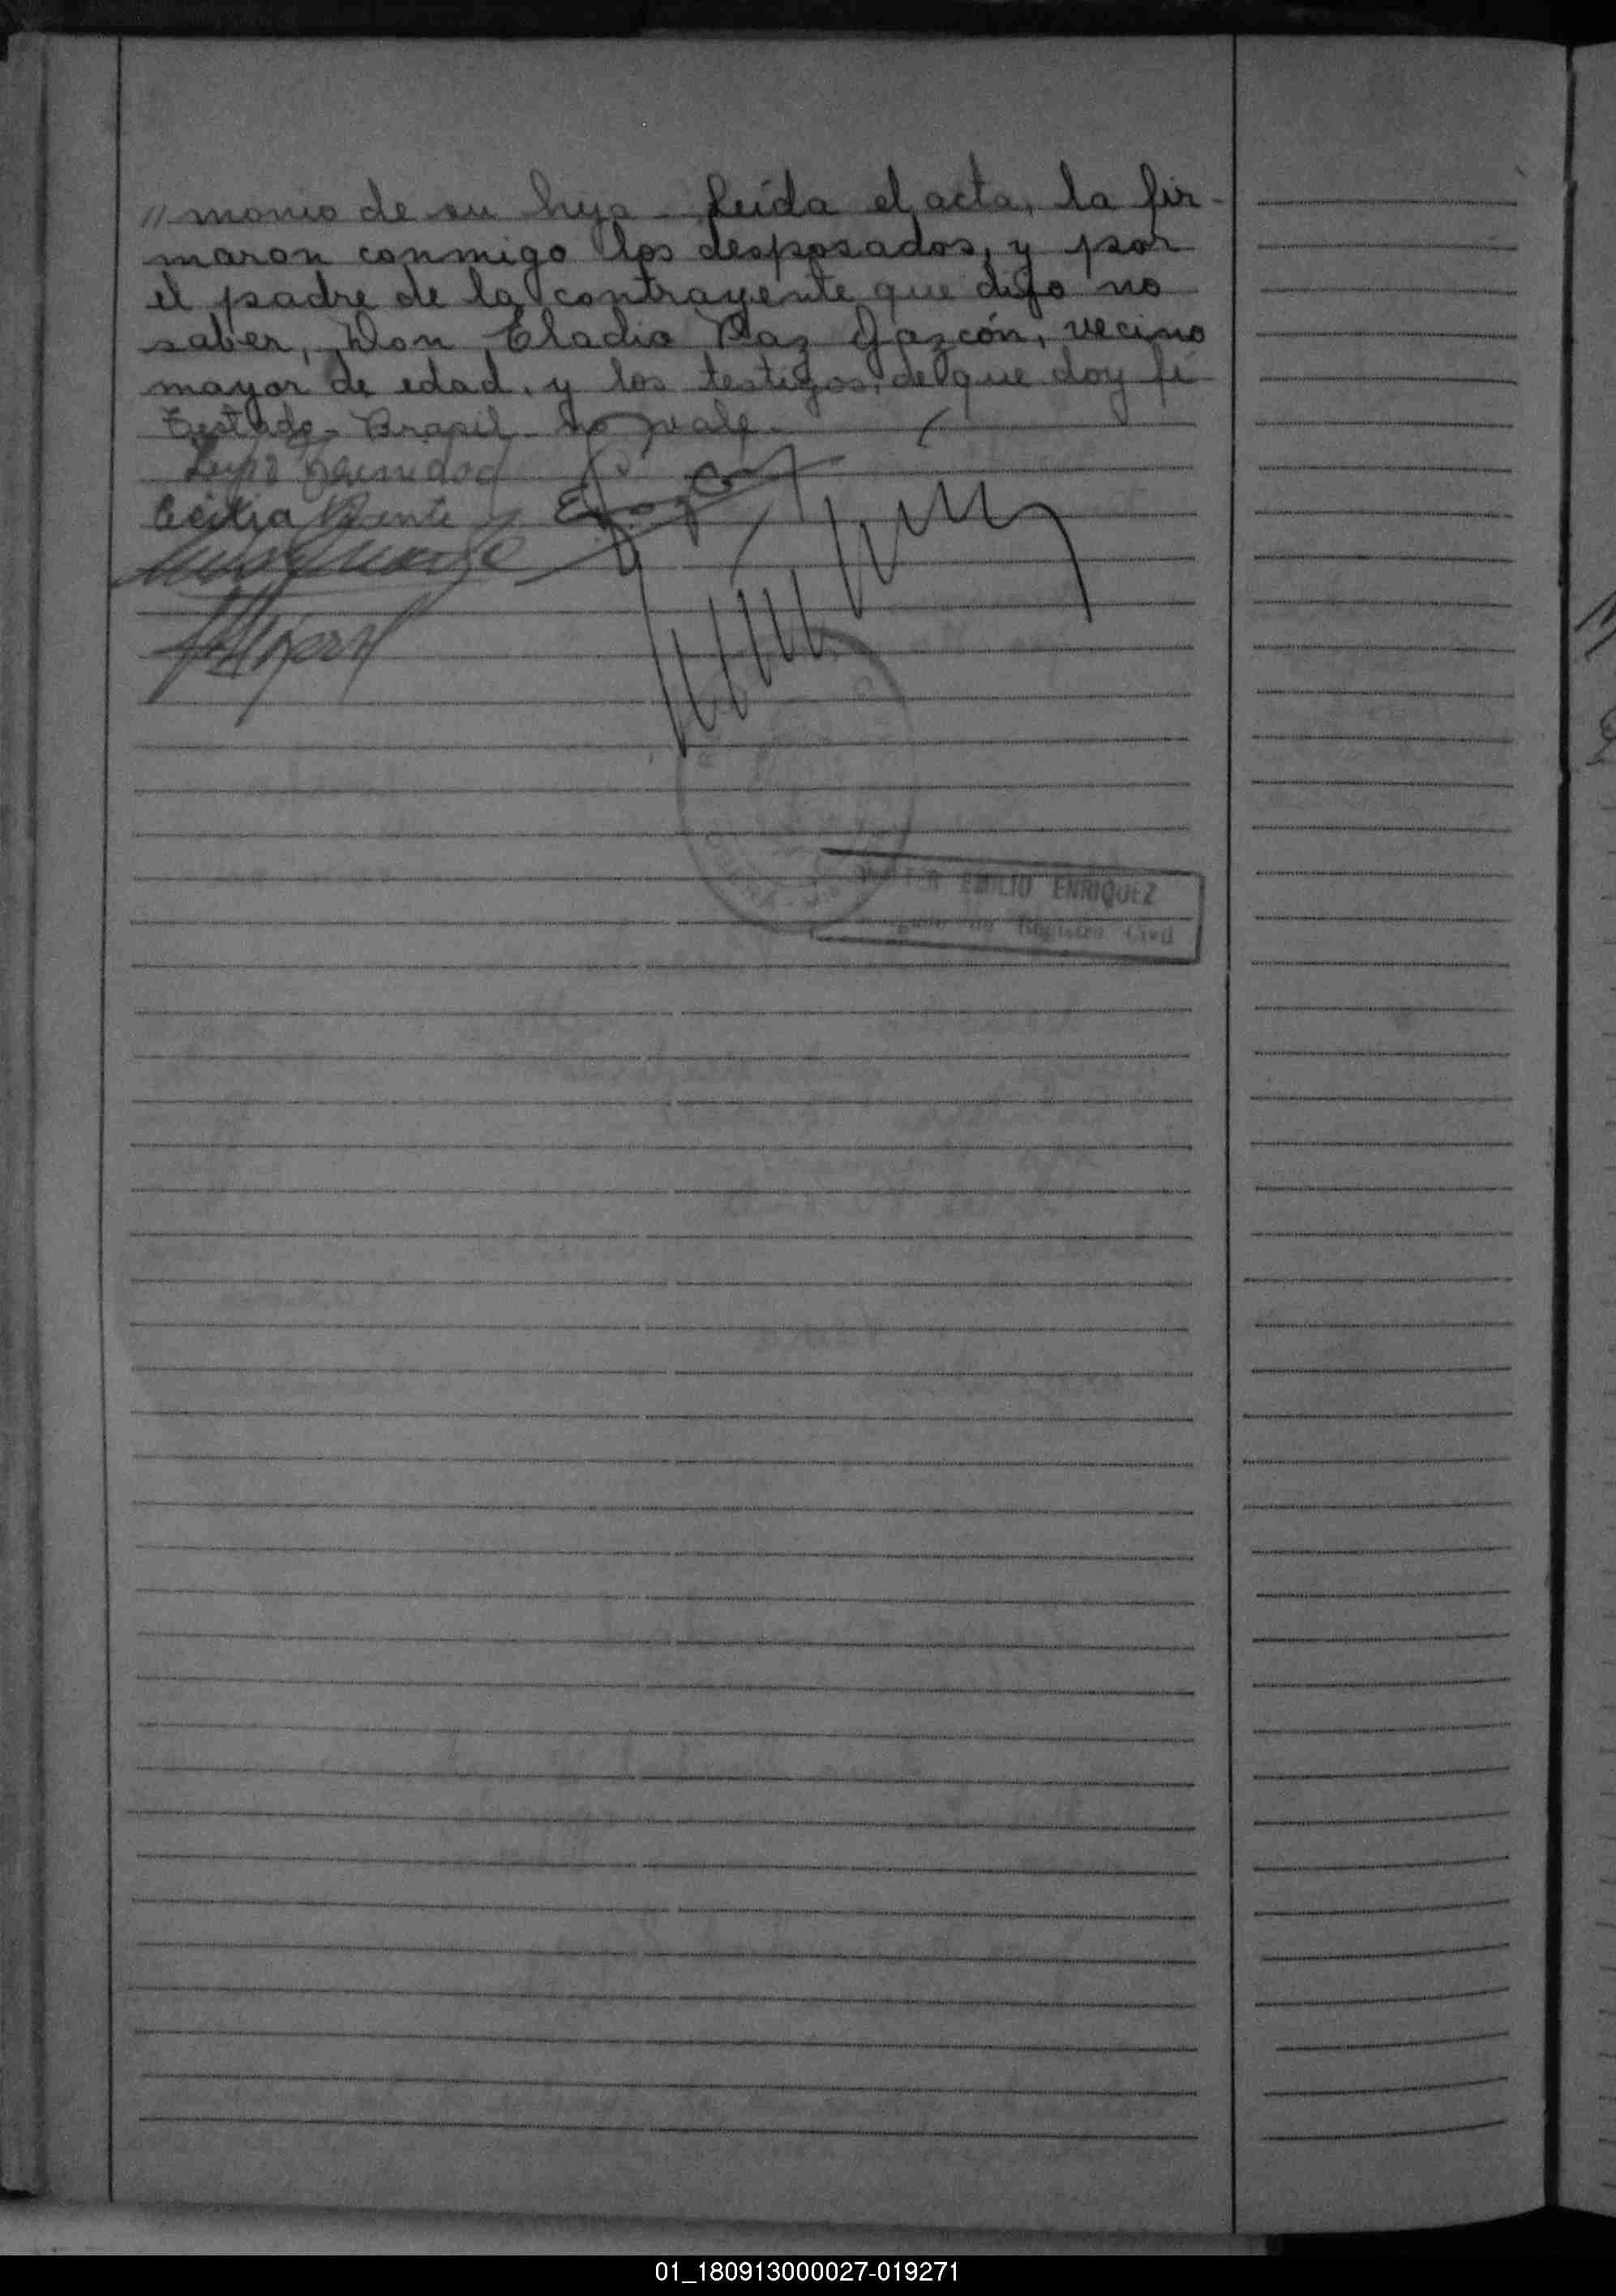 // monio de su hija - Leída el acta, la fir-
maron conmigo los desposados, y por
el padre de la contrayente que dijo no
saber, Don Eladio Paz Gazcón, vecino
mayor de edad, y los testigos, de que doy fé
Testado - Brasil - no vale -
Cecilia
EMILIO ENRIQUEZ
Registro Civil
01_180913000027-019271